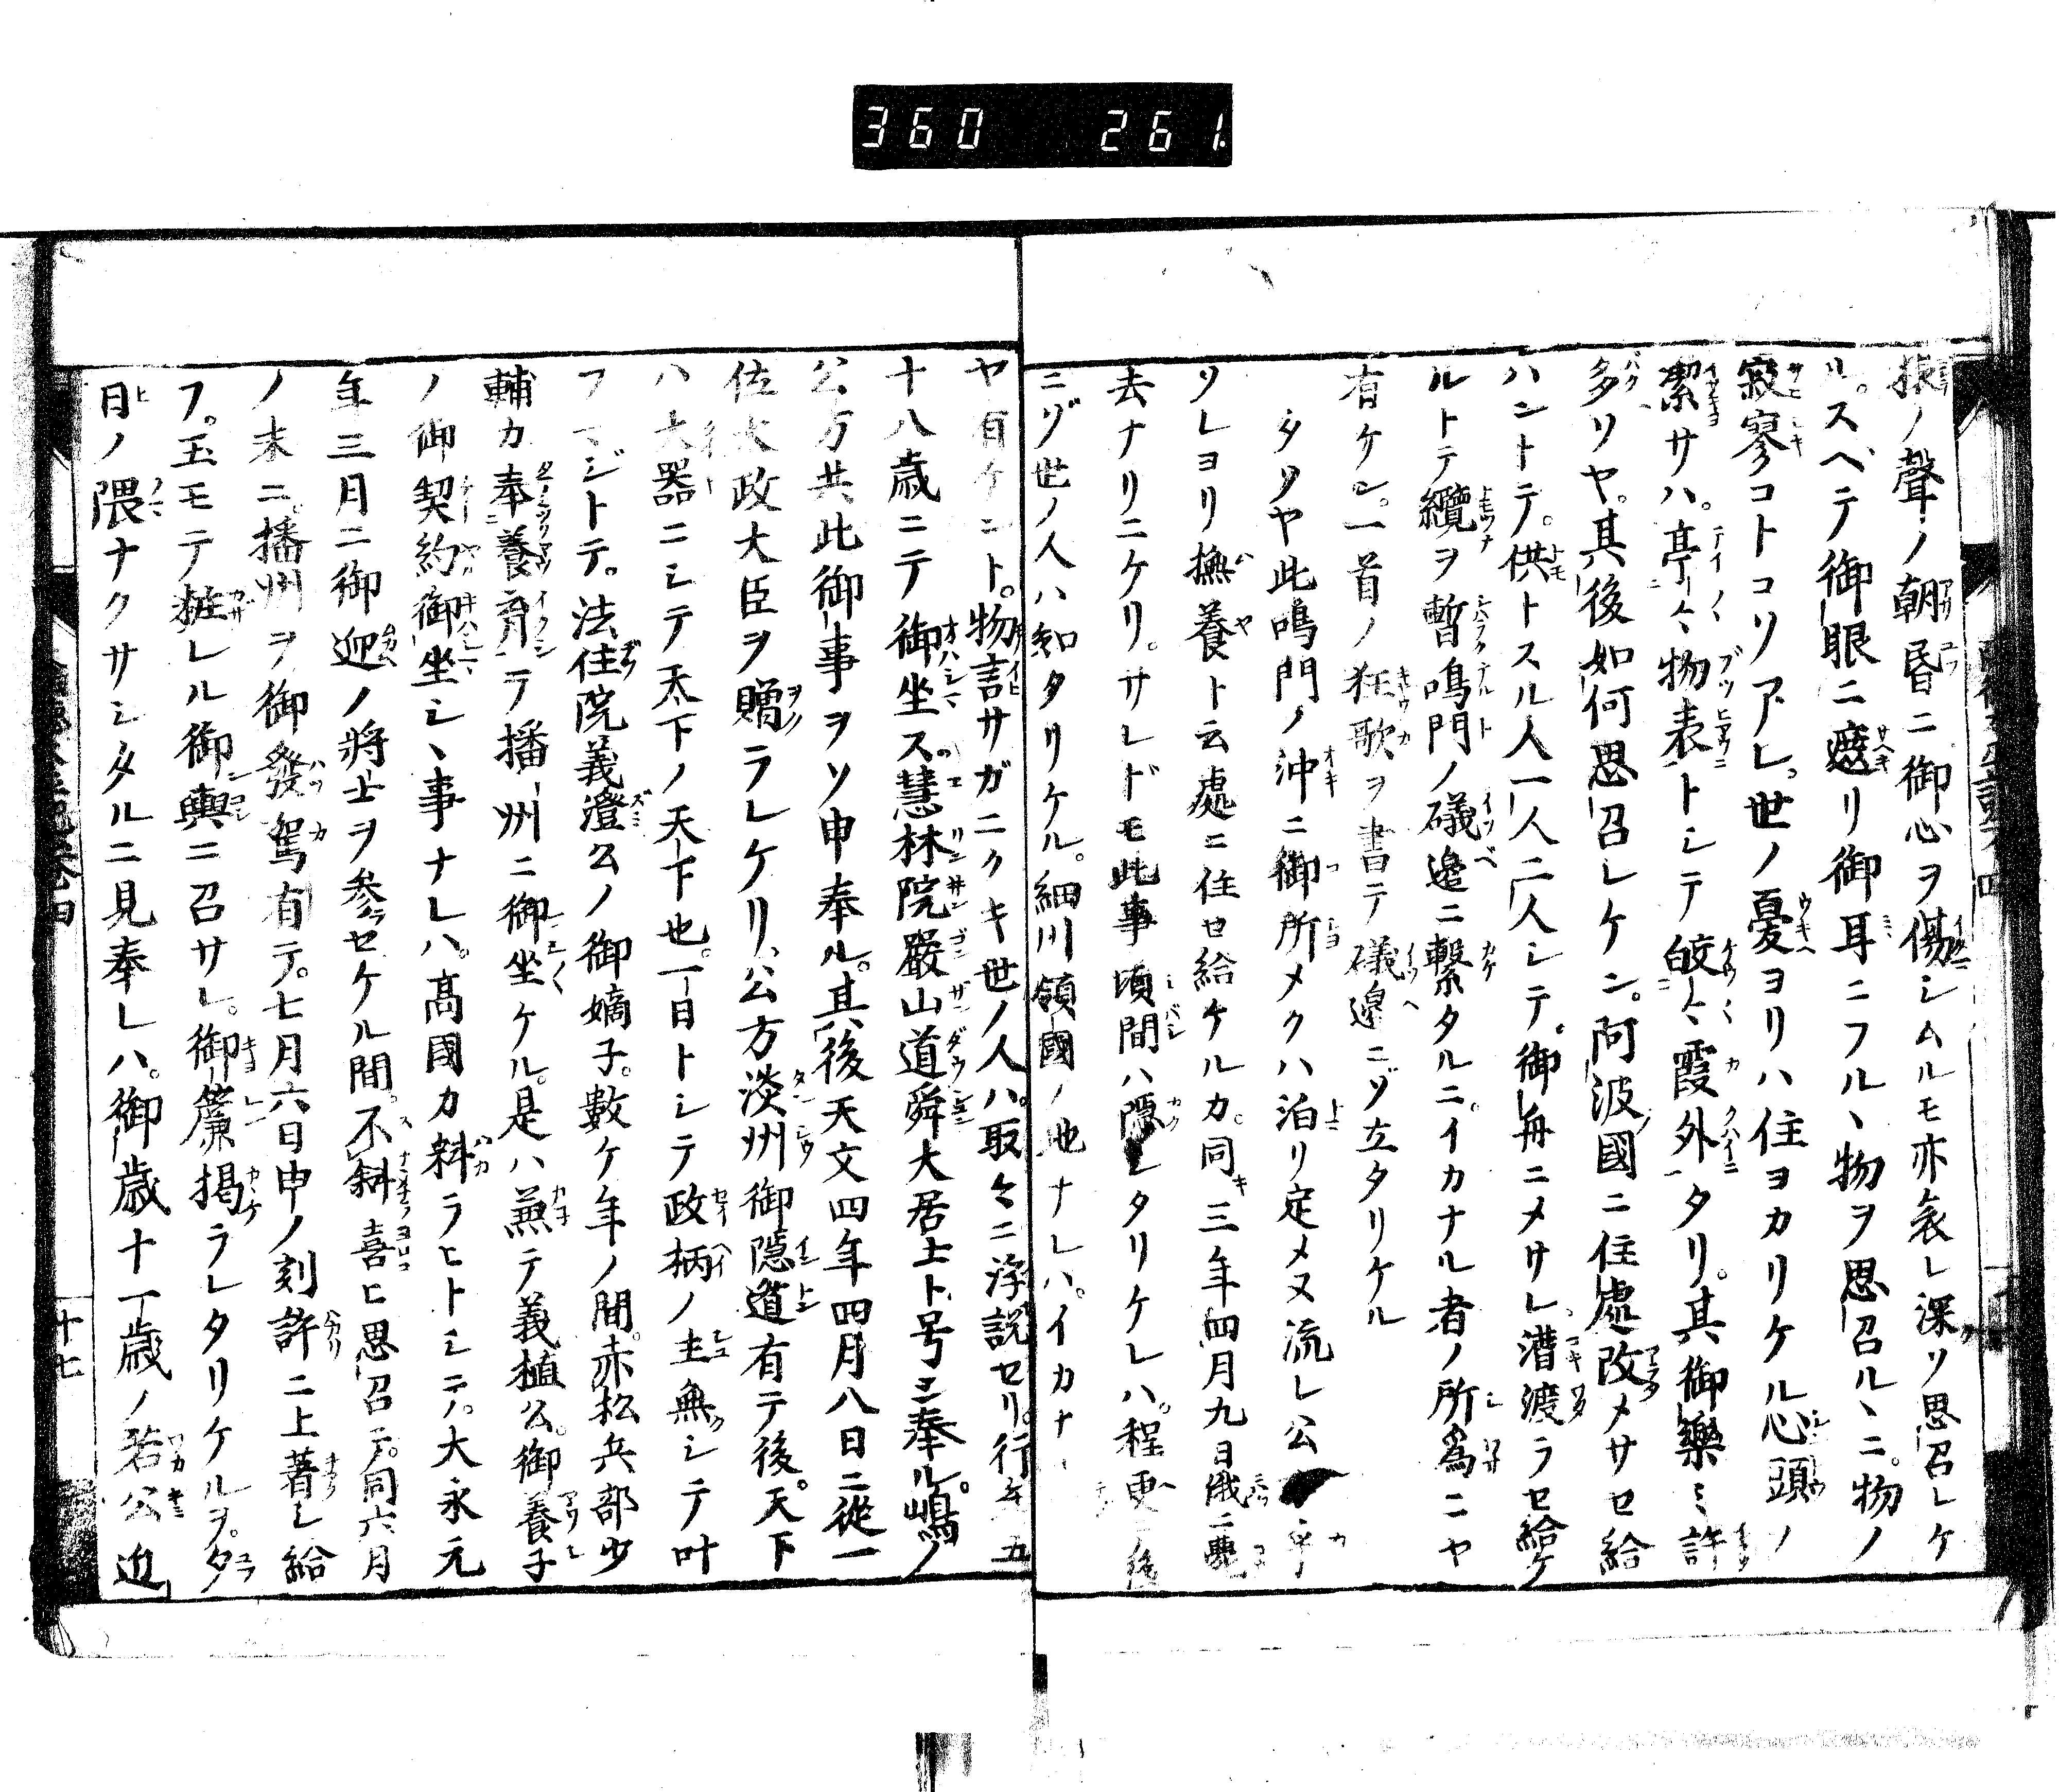 360 261
振ノ聲ノ朝昏ニ御心ヲ傷シムルモ亦哀レ深ソ思召レケ
ル。スベテ御眼ニ遮リ御耳ニフル、物ヲ思召ル、ニ。物ノ
寂寥コトコソアレ。世ノ憂ヨリハ住ヨカリケル心頭ノ
潔サハ。亭々物表トシテ皎々霞外タリ。其御樂ミ許
多ソヤ。其後如何思召レケン。阿波國ニ住處改メサセ給
ハントテ。供トスル人一人二人シテ。御舟ニメサレ漕渡ラセ給ケ
ルトテ纜ヲ暫鳴門ノ礒邉ニ繋タルニ。イカナル者ノ所爲ニヤ
有ケン。一首ノ狂歌ヲ書テ礒邉ニゾ立タリケル
タソヤ此鳴門ノ沖ニ御所メクハ泊リ定メヌ流レ公
ソレヨリ撫養ト云處ニ住セ給ケルカ。同三年四月九日俄ニ薨
去ナリニケリ。サレドモ此事頃間ハ隱シタリケレハ。程更後
ニゾ世ノ人ハ知タリケル。細川領國ノ地ナレハ。イカナ
ヤ有ケント。物言サガニクキ世ノ人ハ。取々ニ浮説セリ。行年五
十八歳ニテ御坐ス慧林院嚴山道舜大居士ト号シ奉ル。嶋ノ
公方共此御事ヲソ申奉ル。其後天文四年四月八日ニ從一
位太政大臣ヲ贈ラレケリ、公方淡州御隱遁有テ後。天下
ハ大器ニシテ天下ノ天下也。一日トシテ政柄ノ主無シテ叶
フマジトテ。法住院義澄公ノ御嫡子。數ケ年ノ間。赤松兵部少
輔カ奉養育テ播州ニ御坐ケル。是ハ兼テ義植公。御養子
ノ御契約御坐シ、事ナレハ。高國カ料ラヒトシテ。大永元
年三月ニ御迎ノ將士ヲ参ラセケル間。不斜喜ヒ思召テ。同六月
ノ末ニ。播州ヲ御發駕有テ。七月六日申ノ刻許ニ上著シ給
フ。玉モテ粧レル御輿ニ召サレ。御簾掲ラレタリケルヲ。夕
日ノ隈ナクサシタルニ見奉レハ。御歳十一歳ノ若公迚
十七